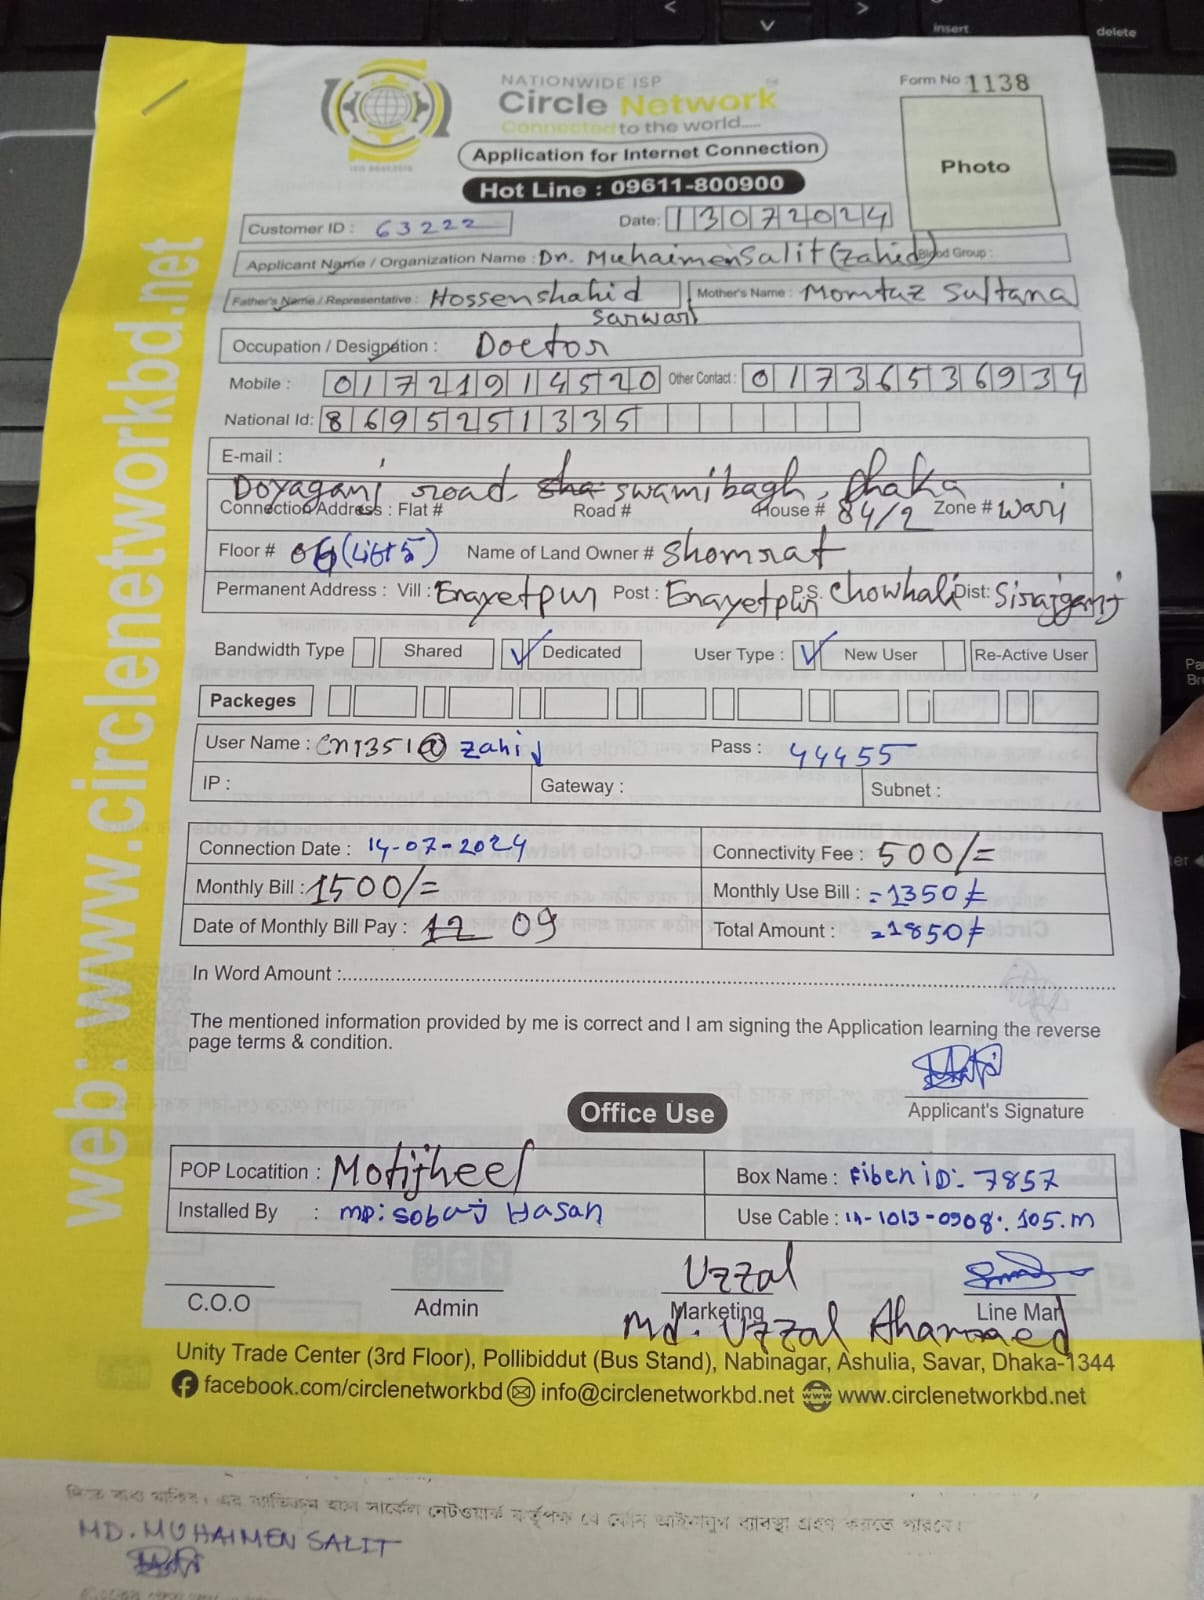 insert
delete
NATIONWIDE ISP
Circle Network
Connected to the world.....
Form No 1138
Photo
Application for Internet Connection
Hot Line : 09611-800900
Customer ID : 63222
Date: 13072024
Applicant Name / Organization Name : Dr. Muhaimen Salit (Zahid) Blood Group :
Father's Name / Representative : Hossen shahid sarwari Mother's Name : Momtaz Sultana
Occupation / Designation : Doctor
Mobile : 01721914520 Other Contact : 01736536934
National Id: 8695251335
E-mail :
Doyaganj road, swamibagh, Dhaka
Connection Address : Flat # Road # House # 84/2 Zone # wari
Floor # 06 (Lift 5) Name of Land Owner # Shomrat
Permanent Address : Vill : Enayetpur Post : Enayetpur P.S. Chowhali Dist: Sirajganj
Bandwidth Type Shared Dedicated User Type : New User Re-Active User
Packeges
User Name : cn1351@zahid Pass : 44455
IP : Gateway : Subnet :
Connection Date : 14-07-2024 Connectivity Fee : 500/=
Monthly Bill : 1500/= Monthly Use Bill : =1350/=
Date of Monthly Bill Pay : 12 09 Total Amount : =1850/=
In Word Amount :
The mentioned information provided by me is correct and I am signing the Application learning the reverse
page terms & condition.
Applicant's Signature
Office Use
POP Locatition : Motijheel Box Name : Fiber iD:- 7857
Installed By : MD: sobuj Hasan Use Cable : 105.m
Uzzal
C.O.O Admin Marketing Line Man
Md. Uzzal Ahammed
Unity Trade Center (3rd Floor), Pollibiddut (Bus Stand), Nabinagar, Ashulia, Savar, Dhaka-1344
facebook.com/circlenetworkbd info@circlenetworkbd.net www.circlenetworkbd.net
web: www.circlenetworkbd.net
সার্কেল নেটওয়ার্ক কর্তৃপক্ষ যে কোন আইনানুগ ব্যবস্থা গ্রহণ করতে পারবে।
MD. MUHAIMEN SALIT